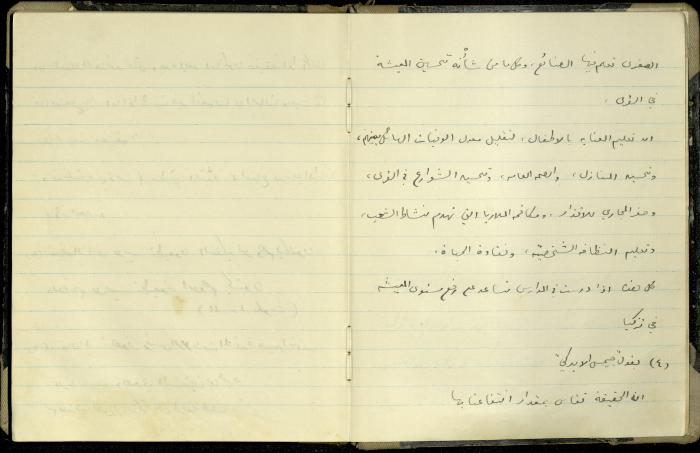 الصغرى تعلم فيها الصنائع، وكل ما من شأنه تحسين المعيشة
في القرى.
ان تعليم العناية بالاطفال، لتقليل معدل الوفيات الهائل بينهم،
وتحسين المنازل، والصحة العامة، وتحسين الشوارع في القرى،
المجاري للاقذار، ومكافحة الملاريا التي تهدم نشاط الشعب،
وتعليم النظافة الشخصية، ونقاوة الحياة.
كل هذا اذا درست في المدارس تساعد على رفع مستوى المعيشة
في تركيا
(٤) يقول جيمس الاميركي
ان الحقيقة تقاس بمقدار انتفاعنا بها